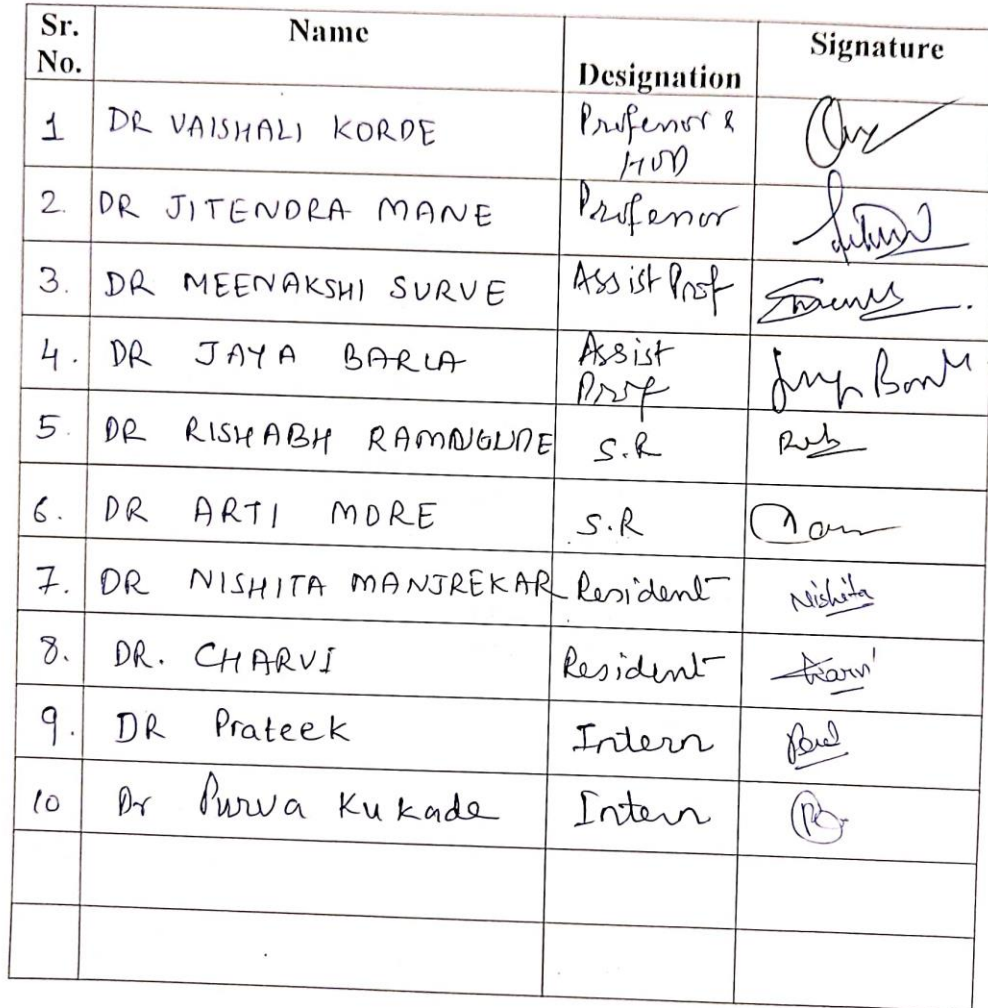 Sr. No. Name Designation Signature
1 DR VAISHALI KORDE Professor & HOD
2. DR JITENDRA MANE Professor
3. DR MEENAKSHI SURVE Assist Prof
4. DR JAYA BARLA Assist Prof
5. DR RISHABH S.R
6. DR ARTI MORE S.R
7. DR NISHITA MANJREKAR Resident Nishita
8. DR. CHARVI Resident
9. DR Prateek Intern
10 Dr Purva Kukade Intern